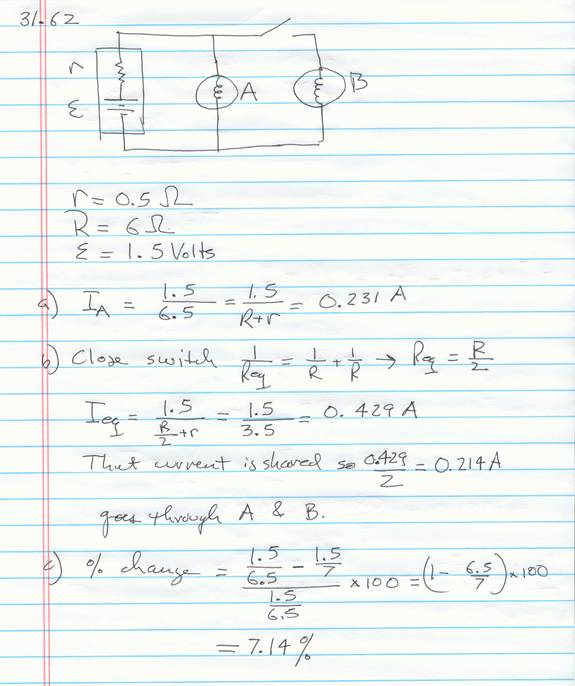 31-62
r
ε
A
B
r = 0.5 Ω
R = 6 Ω
ε = 1.5 Volts
a) I_A = 1.5/6.5 = 1.5/(R+r) = 0.231 A
b) Close switch 1/Req = 1/R + 1/R → Req = R/2
Ieq = 1.5/(R/2+r) = 1.5/3.5 = 0.429 A
That current is shared so 0.429/2 = 0.214 A
goes through A & B.
c) % change = (1.5/6.5 - 1.5/7)/(1.5/6.5) × 100 = (1 - 6.5/7) × 100
= 7.14 %